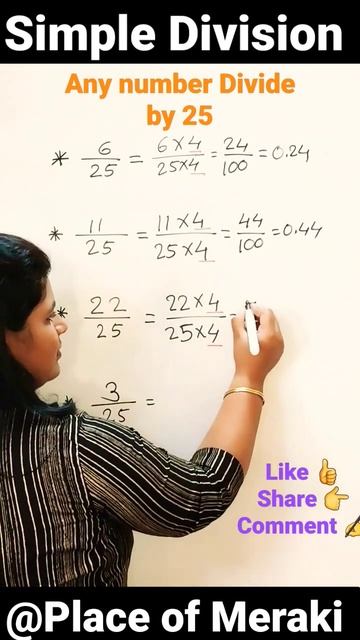 Simple Division
Any number Divide
by 25
* 6/25 = 6×4/25×4 = 24/100 = 0.24
* 11/25 = 11×4/25×4 = 44/100 = 0.44
* 22/25 = 22×4/25×4 =
3/25 =
Like 👍
Share 👉
Comment ✍
@Place of Meraki